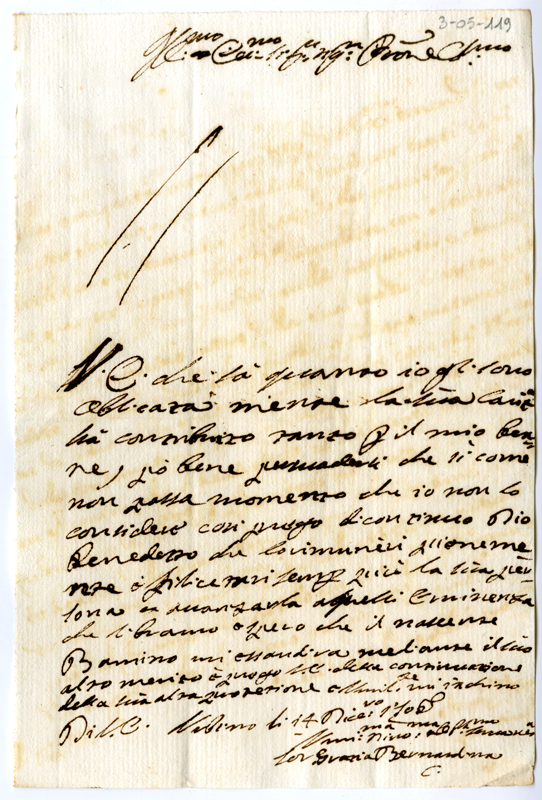 3-05-119
Ill.mo e Rev.mo Sig.r Sig.r Pron.e Col.mo
V. E. che sà quanto io gli sono
obligata mentre la sua Carità
hà contribuito tanto p il mio ben
ne, pò bene persuadersi che sì come
non passa momento che io non lo
consideri cosi prego di continuo Dio
Benedetto che lo rimuneri pienamente
e felicitarsi sempre più la sua per
sona
avanzarla a quelli Eminenza
che li bramo e spero che il nascente
Bamino mi essaudirà mediante il suo
alto merito e prego V.E. della continuazione
della sua alta protezione e Umil.te mi inchino
Di V.E. Urbino li 14 Dice. 170
Umi. Divo: Obl.ma Serva
Sor Grazia Bernardina